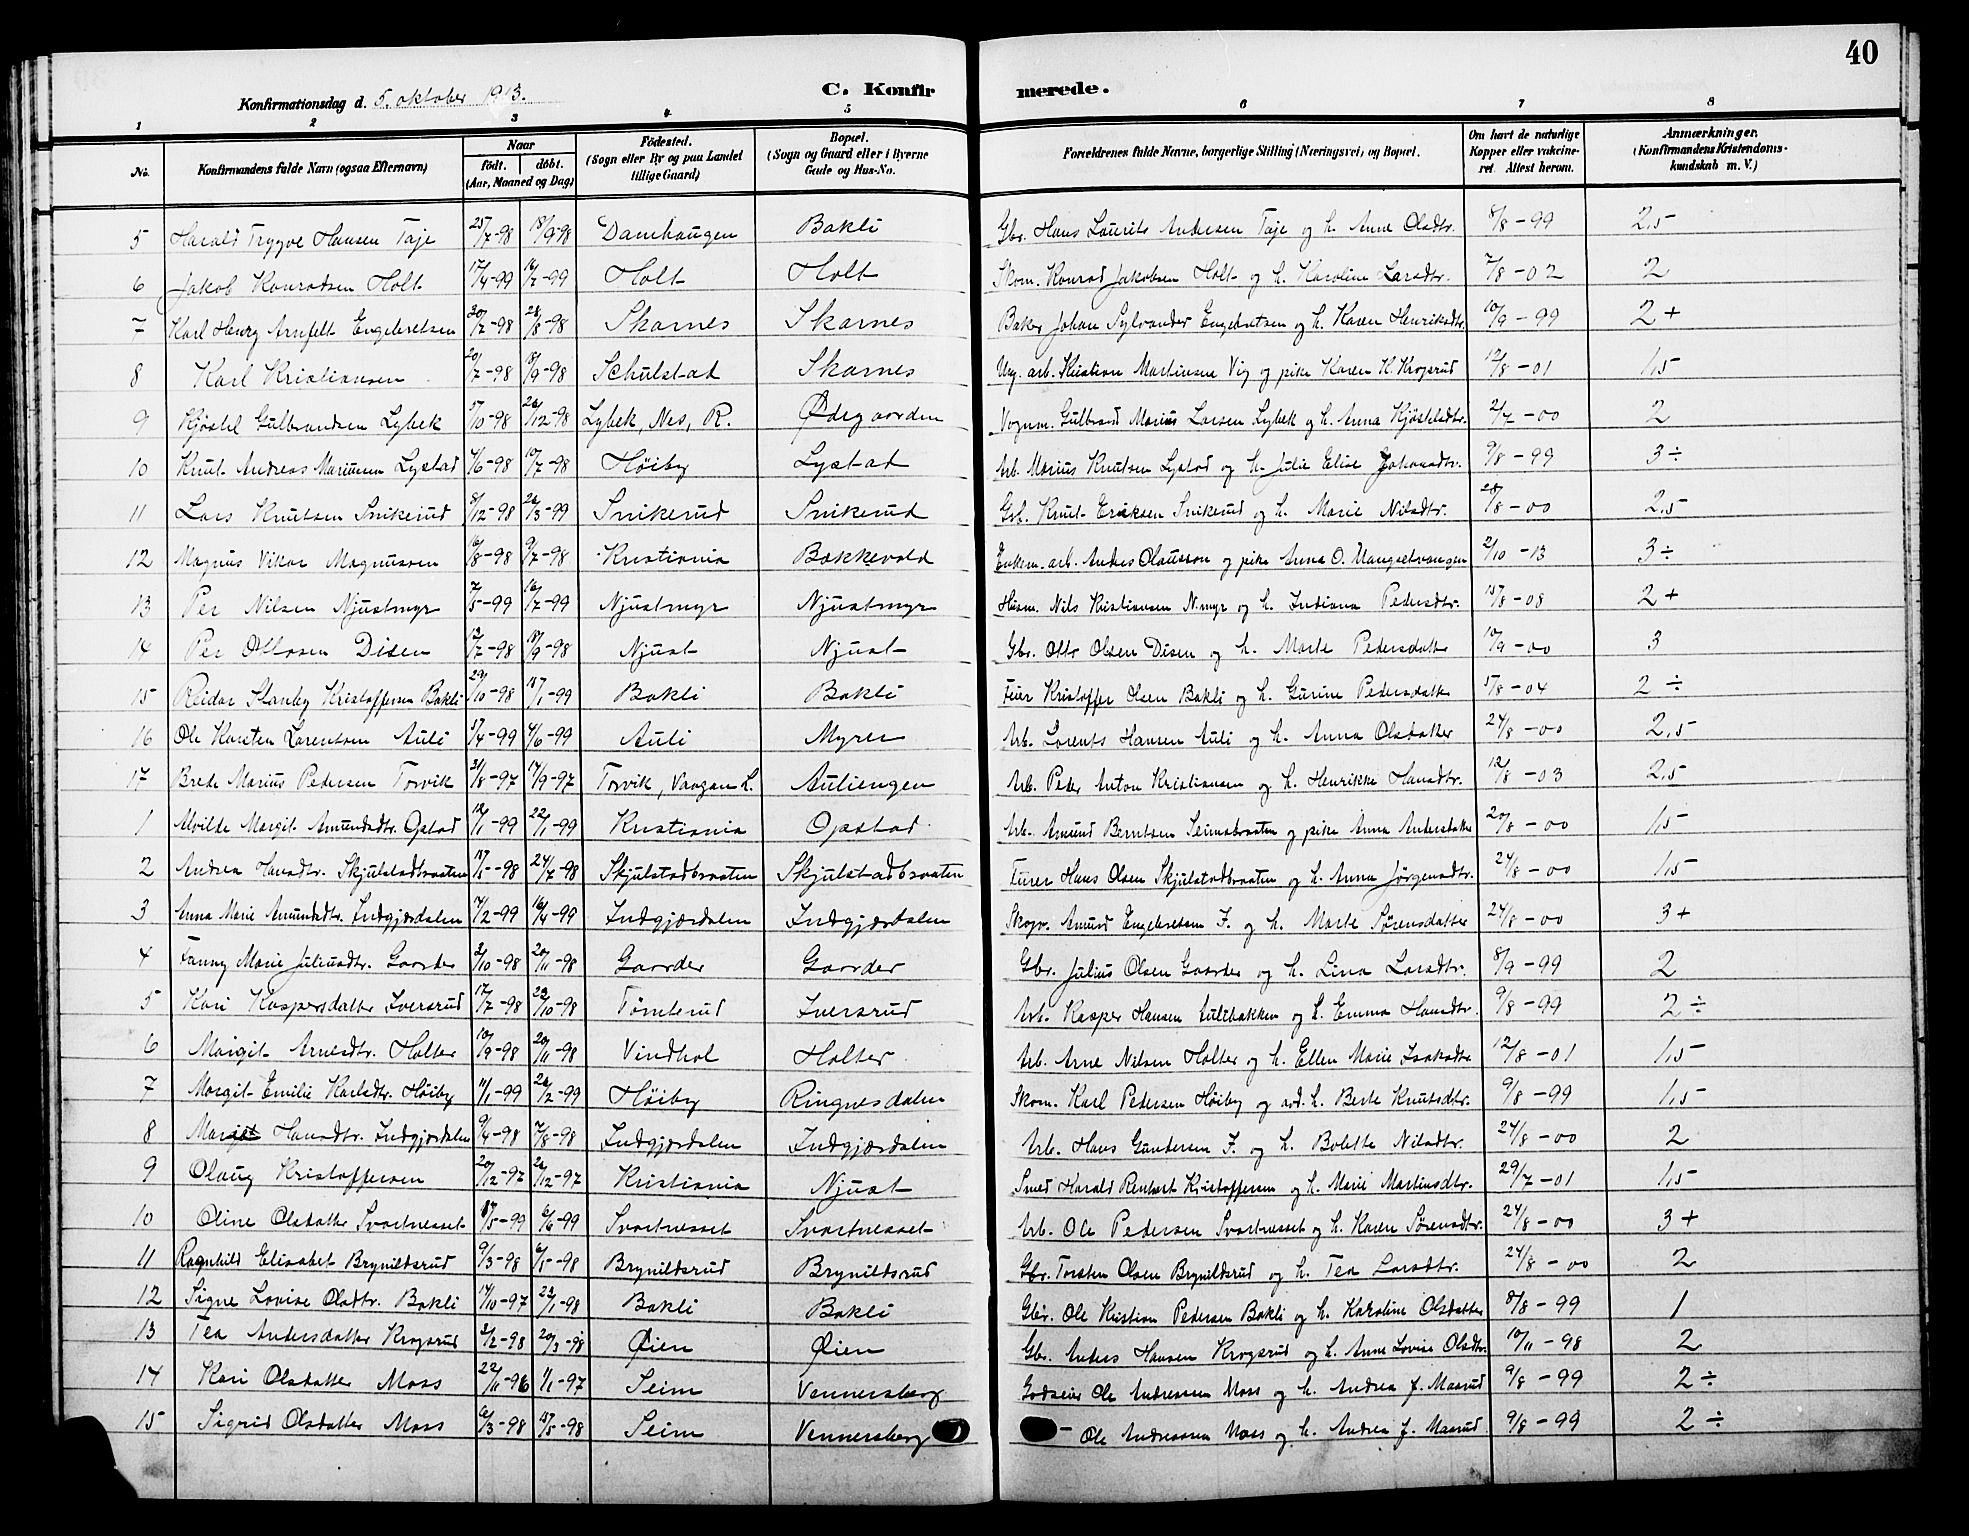 40
Konfirmationsdag d. 5. oktober 1913. C. Konfirmerede.
1 2 3 4 5 6 7 8
No. Konfirmandens fulde Navn (ogsaa Efternavn) Naar født. døbt. (Aar, Maaned og Dag) Fødested. (Sogn eller By og paa Landet tillige Gaard) Bopæl. (Sogn og Gaard eller i Byerne Gade og Hus-No. Forældrenes fulde Navne, borgerlige Stilling (Næringsvei) og Bopæl. Om havt de naturlige Kopper eller vakcineret Attest herom. Anmærkninger. (Konfirmandens Kristendomskundskab m. V.)
5 Harald Trygve Hansen Taje 25/7-98 18/9-98 Damhaugen Bakli Gbr. Hans Laurits Andersen Taje og h. Anne Olsdtr. 8/8-99 2,5
6 Jakob Konradsen Holt 17/4-99 16/7-99 Holt Holt Skom. Konrad Jakobsen Holt og h. Karoline Larsdtr. 7/8-02 2
7 Karl Henry Arnfelt Engebretsen 20/7-98 28/8-98 Skarnes Skarnes Baker Johan Sylvander Engebretsen og h. Karen Henriksdtr. 10/9-99 2+
8 Karl Kristiansen 20/7-98 18/9-98 Schulstad Skarnes Ug. arb. Kristian Martinsen Vig og pike Karen K. Krogsrud 12/8-01 1,5
9 Kjøstel Gulbrandsen Lybek 17/10-98 26/12-98 Lybek, Nes, R. Ødegaarden Vognm. Gulbrand Marius Larsen Lybek og h. Anna Kjøstelsdtr. 2/7-00 2
10 Knut Andreas Mariusen Lystad 4/6-98 10/7-98 Høiby Lystad Arb. Marius Knutsen Lystad og h. Julie Elise Johansdtr. 9/8-99 3÷
11 Lars Knutsen Snikerud 8/12-98 26/3-99 Snikerud Snikerud Gbr. Knut Eriksen Snikerud og h. Marie Nilsdtr. 28/8-00 2,5
12 Magnus Viktor Magnussen Kristiania Bakkevold Enkem. arb. Andres Olausson og pike Anna O. Mangsetvangen 2/10-13 3÷
13 Per Nilsen Njustmyr 7/5-99 16/7-99 Njustmyr Njustmyr Husm. Nils Kristiansen N.myr og h. Indiana Pedersdtr. 15/8-08 2+
14 Per Ottosen Disen 12/7-98 18/9-98 Njust Njust Gbr. Otto Olsen Disen og h. Marte Pedersdatter 10/9-00 3
15 Reidar Stanley Kristoffersen Bakli 29/10-98 15/1-99 Bakli Bakli Feier Kristoffer Olsen Bakli og h. Gurine Pedersdatter 15/8-04 2÷
16 Ole Karsten Lorentsen Auli 17/4-99 4/6-99 Auli Myrer Arb. Lorents Hansen Auli og h. Anna Olsdatter 24/8-00 2,5
17 Brede Marius Pedersen Torvik 31/8-97 19/9-97 Torvik, Vaagan L. Auliengen Arb. Peder Anton Kristiansen og h. Henrikke Hansdtr. 12/8-03 2,5
1 Alvilde Margit Amundsdtr. Opstad 12/1-99 22/1-99 Kristiania Opstad Arb. Amund Berntsen Seimsbraaten og pike Anna Andersdatter 20/8-00 1,5
2 Andrea Hansdtr. Skjulstadbraaten 24/7-98 Skjulstadbraaten Skjulstadbraaten Hans Olsen Skjulstadbraaten og h. Anna Jørgensdtr. 24/8-00 1,5
3 Anna Marie Amundsdtr. Indgjærdalen 14/2-99 16/4-99 Indgjærdalen Indgjærdalen Skogv. Amund Engebretsen I. og h. Marte Sørensdatter 24/8-00 3+
4 Fanny Marie Juliusdtr. Gaarder 3/10-98 20/11-98 Gaarder Gaarder Gbr. Julius Olsen Gaarder og h. Lina Larsdtr. 8/9-99 2
5 Kari Kaspersdatter Iversrud 17/7-98 23/10-98 Tomterud Iversrud Arb. Kasper Hansen Aulibakken og h. Emma Hansdtr. 9/8-99 2÷
6 Margit Arnesdtr. Holter 10/9-98 20/11-98 Vindhol Holter Arb. Arne Nilsen Holter og h. Ellen Marie Isaksdtr 12/8-01 1,5
7 Margit Emilie Karlsdtr. Høiby 11/1-99 26/2-99 Høiby Ringnesdalen Skom. Karl Pedersen Høiby og avd. h. Berte Knutsdtr. 9/8-99 1,5
8 Hansdtr. Indgjærdalen 9/4-98 7/8-98 Indgjærdalen Indgjærdalen Arb. Hans Gundersen I. og h. Bolette Nilsdtr. 24/8-00 2
9 Olaug Kristoffersen 20/12-97 26/12-97 Kristiania Njust Smed Harald Renhart Kristoffersen og h. Marie Martinsdtr. 29/7-01 1,5
10 Oline Olsdatter Svartnesset 6/6-99 Svartnesset Svartnesset Arb. Ole Pedersen Svartnesset og h. Karen Sørensdtr. 24/8-00 3+
11 Ragnhild Elisabet Brynildsrud 9/3-98 6/5-98 Brynildsrud Brynildsrud Gbr. Torsten Olsen Brynildsrud og h. Tea Larsdtr. 24/8-00 2
12 Signe Lovise Olsdtr. Bakli 14/10-97 23/1-98 Bakli Bakli Gbr. Ole Kristian Pedersen Bakli og h. Karoline Olsdatter 8/8-99 1
13 Tea Andersdatter Krogsrud 3/2-98 20/3-98 Øien Øien Gbr. Anders Hansen Krogsrud og h. Anne Lovise Olsdtr. 10/11-98 2
14 Kari Olsdatter Moss 22/11-96 1/1-97 Seim Vennersberg Godseier Ole Andreassen Moss og h. Andrea f. Maarud 9/8-99 2÷
15 Sigrid Olsdatter Moss 6/3-98 15/5-98 Seim Vennersberg – Ole Andreassen Moss og h. Andrea f. Maarud 9/8-99 2÷